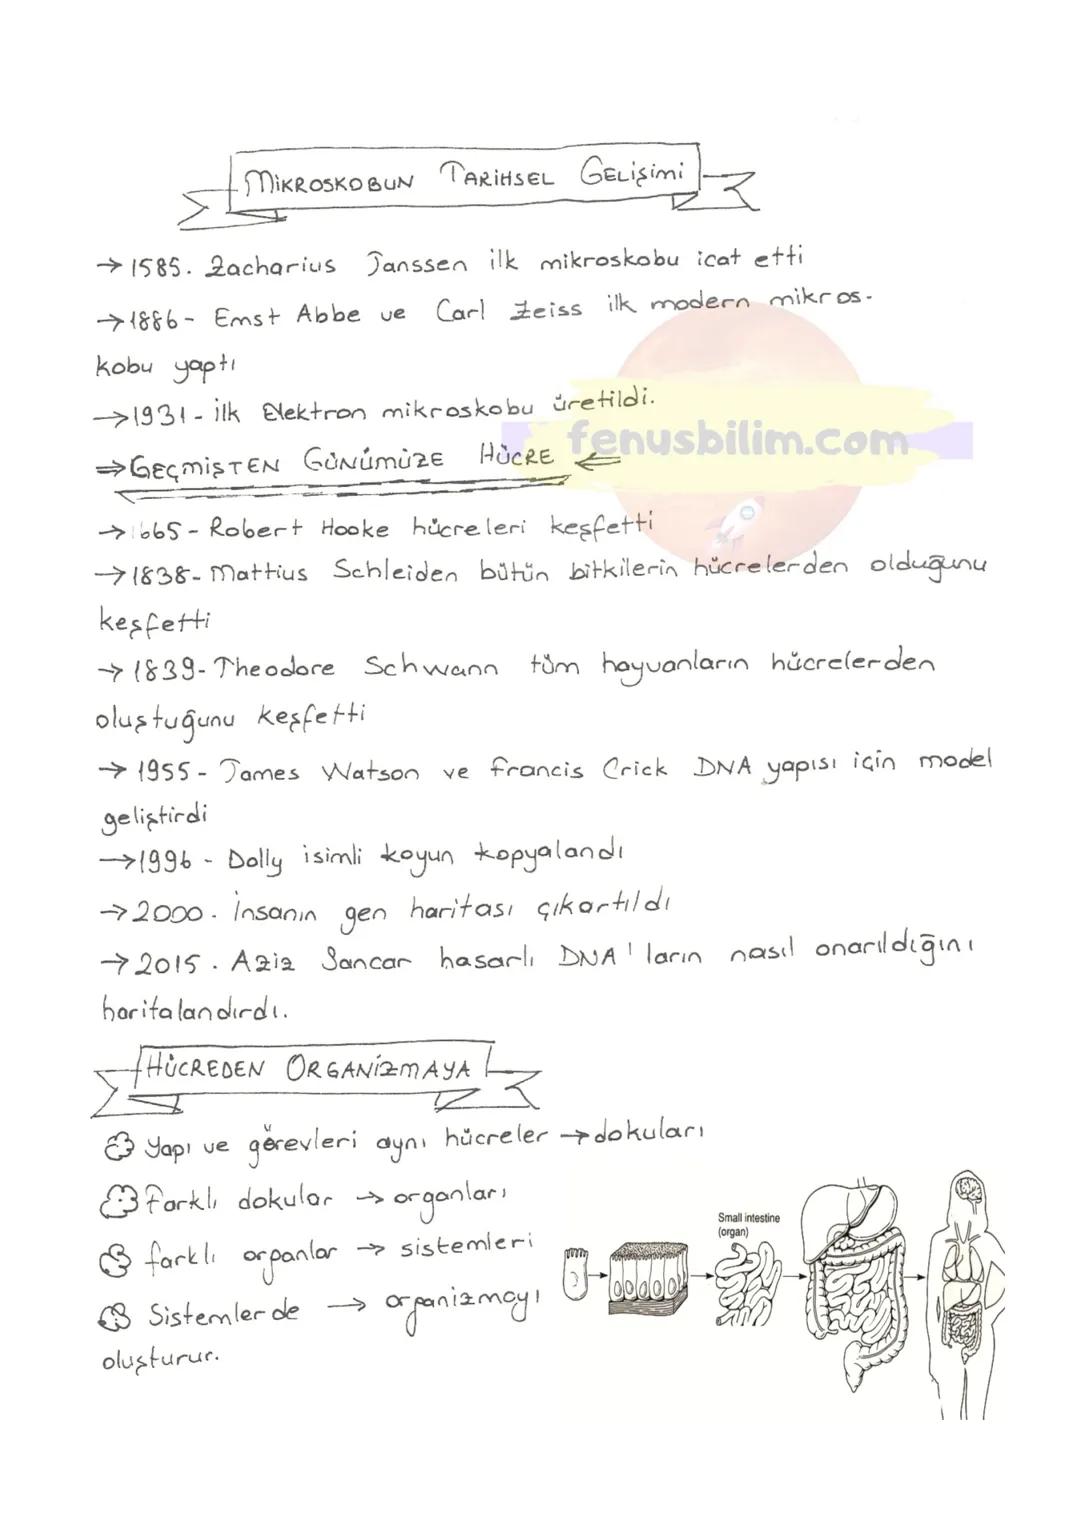 MİKROSKOBUN TARİHSEL GELİŞİMİ
→ 1585. Zacharius Janssen ilk mikroskobu icat etti
→ 1886 - Ernst Abbe ve Carl Zeiss ilk modern mikros-
kobu yaptı
→ 1931 - İlk Elektron mikroskobu üretildi.
fenusbilim.com
⇒ GEÇMİŞTEN GÜNÜMÜZE HÜCRE ⇐
→ 1665 - Robert Hooke hücreleri keşfetti
→ 1838 - Mattius Schleiden bütün bitkilerin hücrelerden olduğunu
keşfetti
→ 1839 - Theodore Schwann tüm hayvanların hücrelerden
oluştuğunu keşfetti
→ 1955 - James Watson ve francis Crick DNA yapısı için model
geliştirdi
→ 1996 - Dolly isimli koyun kopyalandı
→ 2000. İnsanın gen haritası çıkartıldı
→ 2015. Aziz Sancar hasarlı DNA' ların nasıl onarıldığını
haritalandırdı.
HÜCREDEN ORGANİZMAYA
Yapı ve görevleri aynı hücreler → dokuları
Farklı dokular → organları
farklı organlar → sistemleri
Sistemlerde → organizmayı
oluşturur.
Small intestine
(organ)